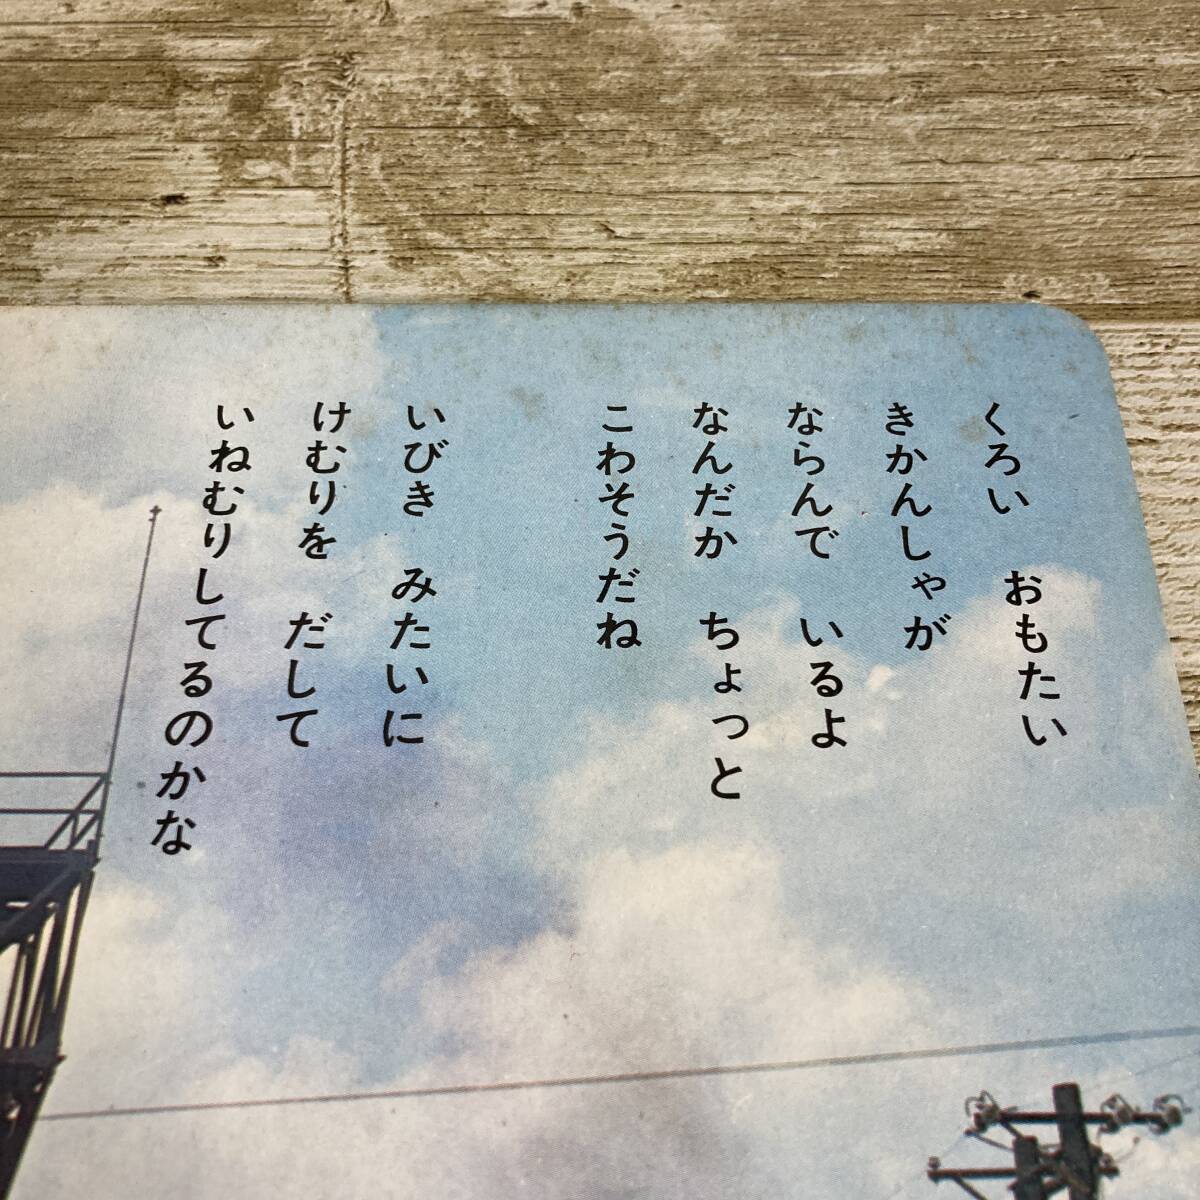 くろい　おもたい
きかんしゃが
ならんで　いるよ
なんだか　ちょっと
こわそうだね
いびき　みたいに
けむりを　だして
いねむりしてるのかな